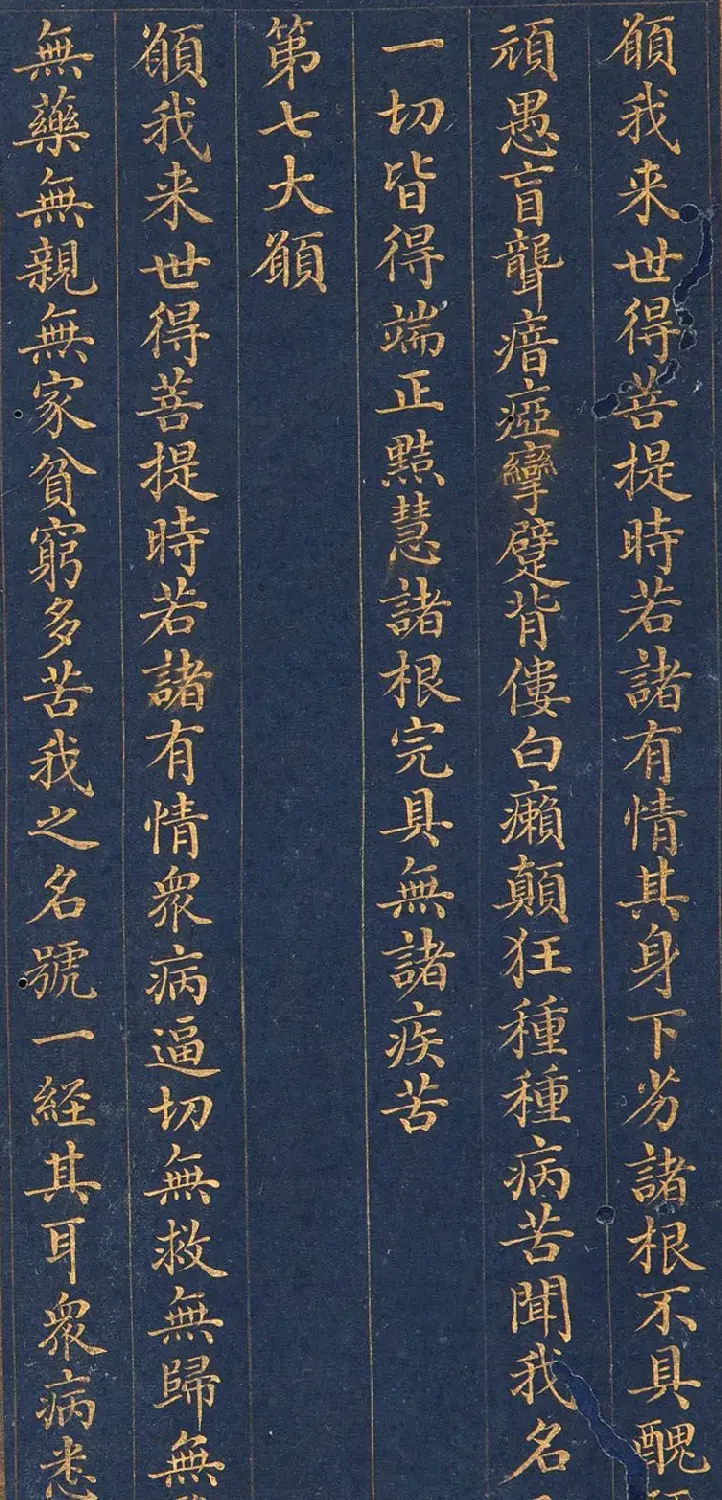 願我来世得菩提時若諸有情其身下劣諸根不具醜
頑愚盲聾瘖瘂攣躄背僂白癩顛狂種種病苦聞我名
一切皆得端正黠慧諸根完具無諸疾苦
第七大願
願我来世得菩提時若諸有情衆病逼切無救無歸無
無藥無親無家貧窮多苦我之名號一経其耳衆病悉